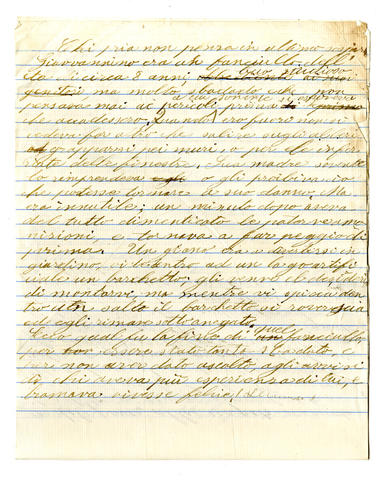 Chi pria non pensa in ultimo sospira
Giovannino era un fanciullo dell'
età di circa 8 anni, buo studioso
genitori ma molto sbadato che non
pensava mai ai pericoli prima
che accadessero. Quando ero fuori non si
vedeva far altro che salire sugli alberi
arrampicarsi pei muri, o per le infer
riate delle finestre. Sua madre sovente
lo riprendeva e gli proibiva ciò
che potesse tornare in suo danno. Ma
era inutile; un minuto dopo aveva
del tutto dimenticato le materne am
monizioni, e tornava a far peggio di
prima. Un giorno era a
giardino, e
ciale un barchetto, gli venne il desiderio
di montarvi, ma mentre vi spiccò den
tro un salto il barchetto si rovesciò
ed egli rimase sott'annegato.
Ecco qual fu la fine di quel fanciullo,
per essere stato tanto sbadato, e
per non aver dato ascolto, agli avvisi
di chi aveva più esperienza di lui, e
bramava vivesse felice!